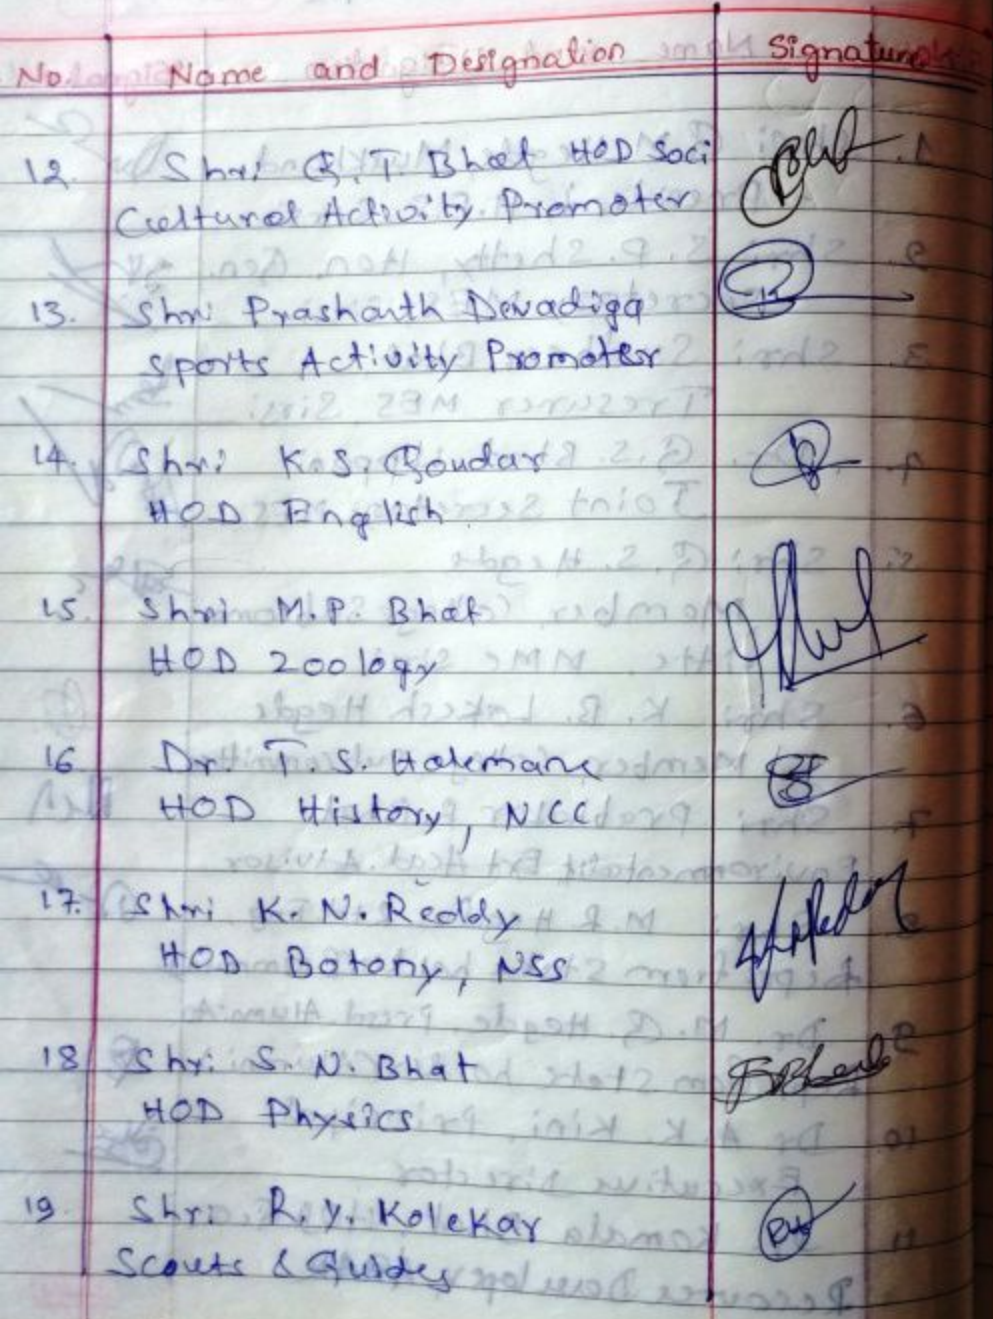 No. Name and Designation Signature
12. Shri G. T. Bhat HOD Soci
Cultural Activity Promoter
13. Shri Prashanth Devadiga
Sports Activity Promoter
14. Shri K. S. Goudar
HOD English
15. Shri M. P. Bhat
HOD Zoology
16 Dr. T. S. Halemane
HOD History, NCC
17. Shri K. N. Reddy
HOD Botony, NSS
18 Shri S. N. Bhat
HOD Physics
19 Shri R. Y. Kolekar
Scouts & Guides